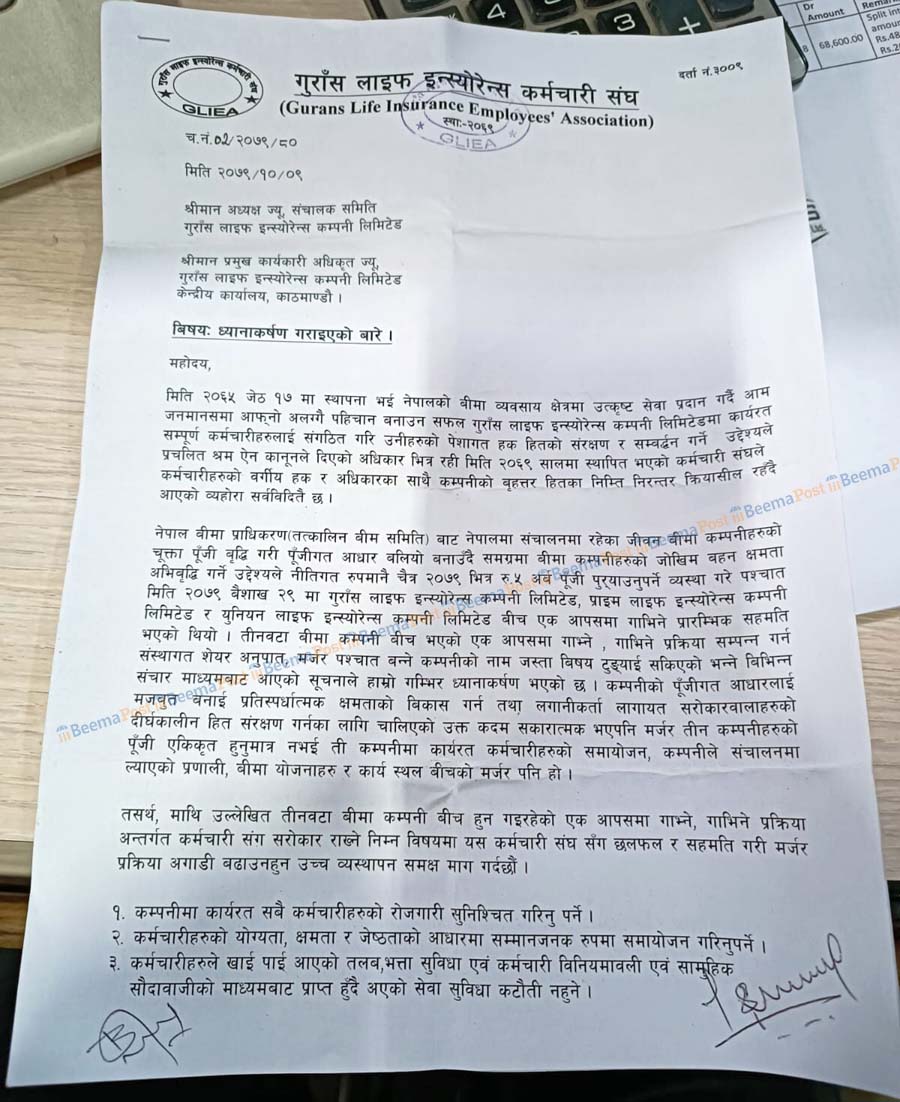 Dr
Amount
Split int
amour
68,600.00
Rs.48
4
3
+
गुराँस लाइफ इन्स्योरेन्स कर्मचारी संघ
GLIEA
गुराँस लाइफ इन्स्योरेन्स कर्मचारी संघ
दर्ता नं.३००९
(Gurans Life Insurance Employees' Association)
स्था:-२०६९
GLIEA
च.नं.02/२०७९/८०
मिति २०७९/१०/०९
श्रीमान अध्यक्ष ज्यू, संचालक समिति
गुराँस लाइफ इन्स्योरेन्स कम्पनी लिमिटेड
श्रीमान प्रमुख कार्यकारी अधिकृत ज्यू,
गुराँस लाइफ इन्स्योरेन्स कम्पनी लिमिटेड
केन्द्रीय कार्यालय, काठमाण्डौ ।
बिषयः ध्यानाकर्षण गराइएको बारे ।
महोदय,
मिति २०६५ जेठ १७ मा स्थापना भई नेपालको बीमा व्यवसाय क्षेत्रमा उत्कृष्ट सेवा प्रदान गर्दै आम
जनमानसमा आफ्नो अलग्गै पहिचान बनाउन सफल गुराँस लाइफ इन्स्योरेन्स कम्पनी लिमिटेडमा कार्यरत
सम्पूर्ण कर्मचारीहरुलाई संगठित गरि उनीहरुको पेशागत हक हितको संरक्षण र सम्वर्द्धन गर्ने उद्देश्यले
प्रचलित श्रम ऐन कानूनले दिएको अधिकार भित्र रही मिति २०६९ सालमा स्थापित भएको कर्मचारी संघले
कर्मचारीहरुको वर्गीय हक र अधिकारका साथै कम्पनीको बृहत्तर हितका निम्ति निरन्तर क्रियासील रहँदै
आएको व्यहोरा सर्वविदितै छ ।
नेपाल बीमा प्राधिकरण(तत्कालिन बीम समिति) बाट नेपालमा संचालनमा रहेका जीवन बीमा कम्पनीहरुको
चूक्ता पूँजी बृद्धि गरी पूँजीगत आधार बलियो बनाउँदै समग्रमा बीमा कम्पनीहरुको जोखिम बहन क्षमता
अभिबृद्धि गर्ने उद्देश्यले नीतिगत रुपमानै चैत्र २०७९ भित्र रु.५ अर्ब पूँजी पुर्‍याउनुपर्ने व्यस्था गरे पश्चात
मिति २०७९ बैशाख २९ मा गुराँस लाइफ इन्स्योरेन्स कम्पनी लिमिटेड, प्राइम लाइफ इन्स्योरेन्स कम्पनी
लिमिटेड र युनियन लाइफ इन्स्योरेन्स कम्पनी लिमिटेड बीच एक आपसमा गाभिने प्रारम्भिक सहमति
भएको थियो । तीनवटा बीमा कम्पनी बीच भएको एक आपसमा गाभ्ने , गाभिने प्रक्रिया सम्पन्न गर्न
संस्थागत शेयर अनुपात, मर्जर पश्चात बन्ने कम्पनीको नाम जस्ता बिषय टुङ्ग्याई सकिएको भन्ने बिभिन्न
संचार माध्यमबाट आएको सूचनाले हाम्रो गम्भिर ध्यानाकर्षण भएको छ । कम्पनीको पूँजीगत आधारलाई
मजवुत बनाई प्रतिस्पर्धात्मक क्षमताको बिकास गर्न तथा लगानीकर्ता लागायत सरोकारवालाहरुको
दीर्घकालीन हित संरक्षण गर्नका लागि चालिएको उक्त कदम सकारात्मक भएपनि मर्जर तीन कम्पनीहरुको
पूँजी एकिकृत हुनुमात्र नभई ती कम्पनीमा कार्यरत कर्मचारीहरुको समायोजन, कम्पनीले संचालनमा
ल्याएको प्रणाली, बीमा योजनाहरु र कार्य स्थल बीचको मर्जर पनि हो ।
तसर्थ, माथि उल्लेखित तीनवटा बीमा कम्पनी बीच हुन गइरहेको एक आपसमा गाभ्ने, गाभिने प्रक्रिया
अन्तर्गत कर्मचारी संग सरोकार राख्ने निम्न विषयमा यस कर्मचारी संघ सँग छलफल र सहमति गरी मर्जर
प्रक्रिया अगाडी बढाउनहुन उच्च व्यस्थापन समक्ष माग गर्दछौं ।
१. कम्पनीमा कार्यरत सबै कर्मचारीहरुको रोजगारी सुनिश्चित गरिनु पर्ने ।
२. कर्मचारीहरुको योग्यता, क्षमता र जेष्ठताको आधारमा सम्मानजनक रुपमा समायोजन गरिनुपर्ने ।
३. कर्मचारीहरुले खाई पाई आएको तलब,भत्ता सुविधा एवं कर्मचारी विनियमावली एवं सामुहिक
सौदावाजीको माध्यमबाट प्राप्त हुँदै अएको सेवा सुविधा कटौती नहुने ।
BeemaPost BeemaPost BeemaPost BeemaPost BeemaPost BeemaPost